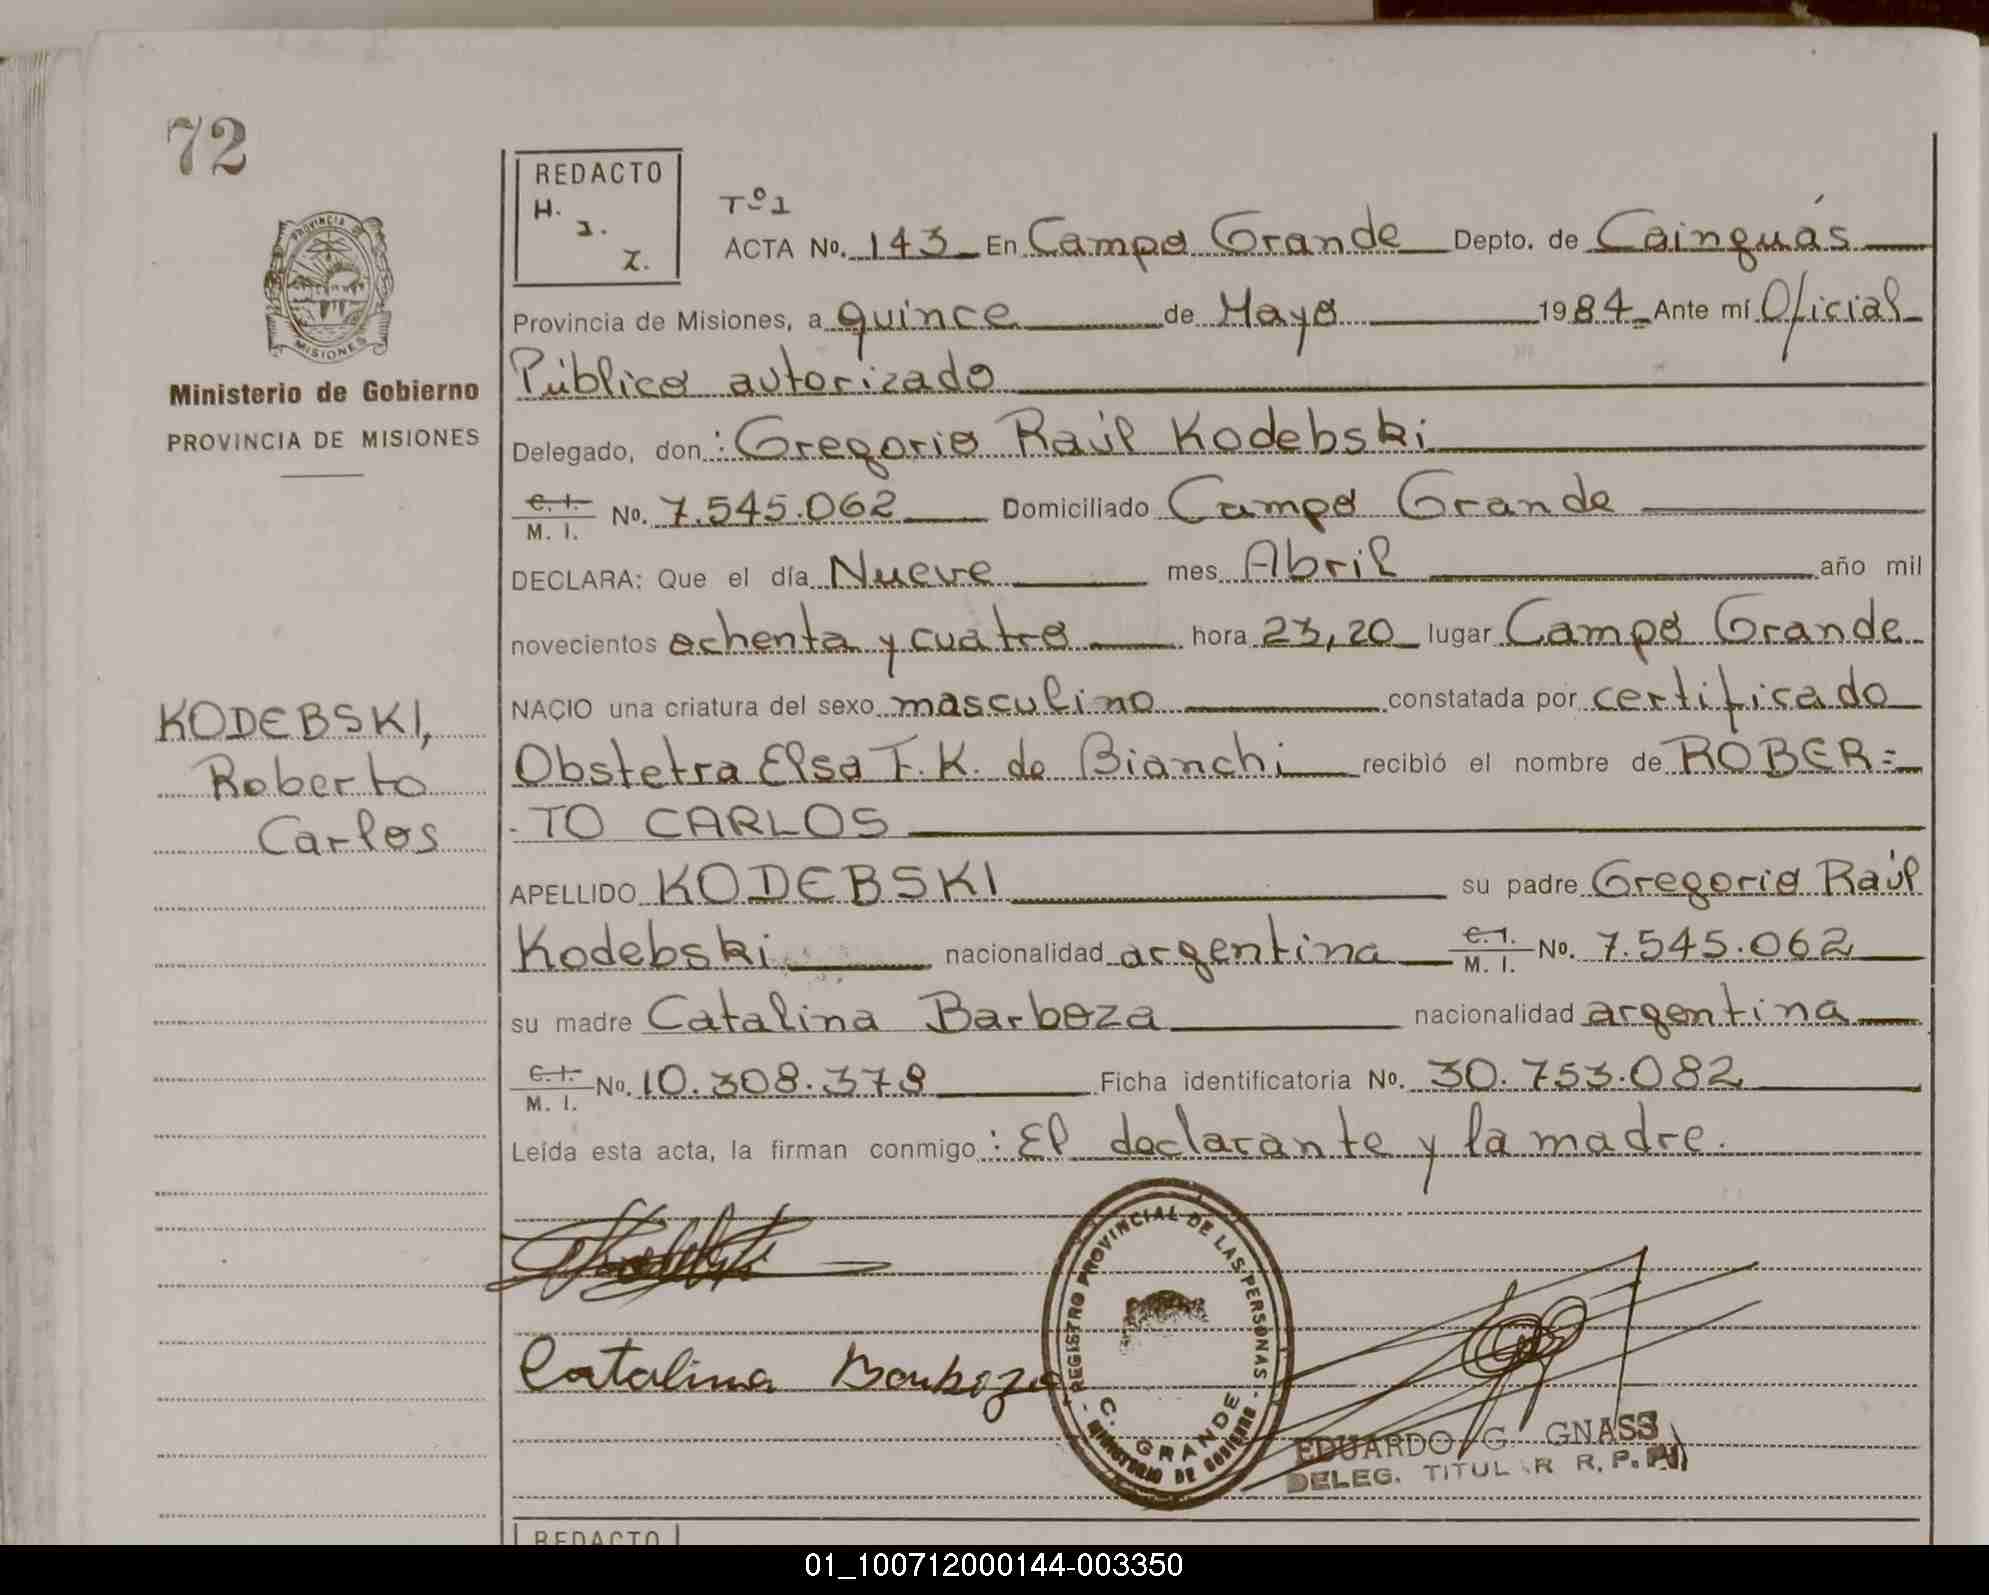 72
REDACTO
H.
J.
Z.
Tº1
ACTA No. 143 En Campo Grande Depto. de Cainguás
PROVINCIA
MISIONES
Provincia de Misiones, a quince de Mayo 1984 Ante mí Oficial
Público autorizado
Ministerio de Gobierno
PROVINCIA DE MISIONES
Delegado, don: Gregorio Raúl Kodebski
C. I.
M. I. No. 7.545.062 Domiciliado Campo Grande
DECLARA: Que el día Nueve mes Abril año mil
novecientos ochenta y cuatro hora 23,20 lugar Campo Grande
NACIO una criatura del sexo masculino constatada por certificado
Obstetra Elsa F. K. de Bianchi recibió el nombre de ROBER=
-TO CARLOS
KODEBSKI,
Roberto
Carlos
APELLIDO KODEBSKI su padre Gregorio Raúl
Kodebski nacionalidad argentina C. I. M. I. No. 7.545.062
su madre Catalina Barboza nacionalidad argentina
C. I.
M. I. No. 10.308.378 Ficha identificatoria No. 30.753.082
Leída esta acta, la firman conmigo: El declarante y la madre.
Catalina Barboza
REGISTRO PROVINCIAL DE LAS PERSONAS
C. GRANDE
MINISTERIO DE GOBIERNO
EDUARDO G. GNASS
DELEG. TITULAR R. P.
REDACTO
01_100712000144-003350